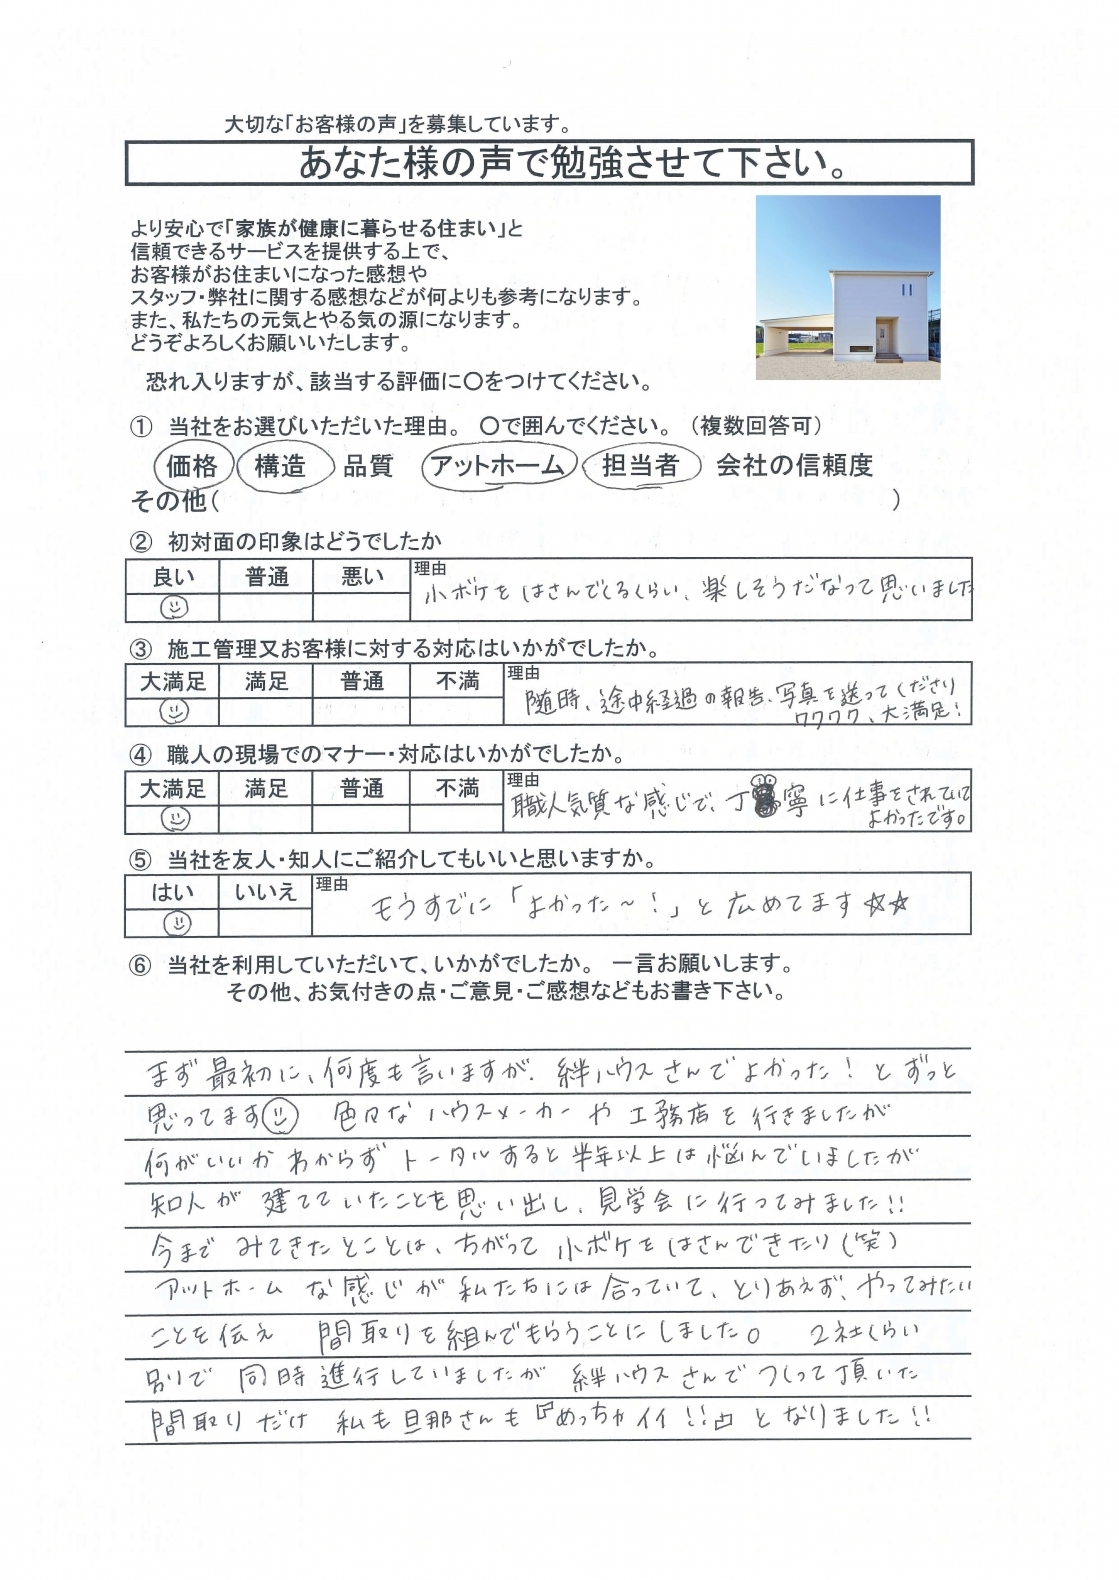 大切な「お客様の声」を募集しています。
あなた様の声で勉強させて下さい。
より安心で「家族が健康に暮らせる住まい」と
信頼できるサービスを提供する上で、
お客様がお住まいになった感想や
スタッフ・弊社に関する感想などが何よりも参考になります。
また、私たちの元気とやる気の源になります。
どうぞよろしくお願いいたします。
恐れ入りますが、該当する評価に〇をつけてください。
① 当社をお選びいただいた理由。 〇で囲んでください。 （複数回答可）
価格 構造 品質 アットホーム 担当者 会社の信頼度
その他（ ）
② 初対面の印象はどうでしたか
良い 普通 悪い 理由
小ボケをはさんでくるくらい、楽しそうだなって思いました
③ 施工管理又お客様に対する対応はいかがでしたか。
大満足 満足 普通 不満 理由
随時、途中経過の報告、写真を送ってくださり
ワクワク、大満足！
④ 職人の現場でのマナー・対応はいかがでしたか。
大満足 満足 普通 不満 理由
職人気質な感じで、丁寧に仕事をされていて
よかったです。
⑤ 当社を友人・知人にご紹介してもいいと思いますか。
はい いいえ 理由
もうすでに「よかった～！」と広めてます☆☆
⑥ 当社を利用していただいて、いかがでしたか。 一言お願いします。
その他、お気付きの点・ご意見・ご感想などもお書き下さい。
まず最初に、何度も言いますが、絆ハウスさんでよかった！とずっと
思ってます 色々なハウスメーカーや工務店を行きましたが
何がいいかわからずトータルすると半年以上は悩んでいましたが
知人が建てていたことを思い出し、見学会に行ってみました!!
今までみてきたとことは、ちがって小ボケをはさんできたり（笑）
アットホームな感じが私たちには合っていて、とりあえず、やってみたい
ことを伝え 間取りを組んでもらうことにしました。 2社くらい
別りで同時進行していましたが絆ハウスさんでつくって頂いた
間取りだけ私も旦那さんも『めっちゃイイ!!』となりました!!